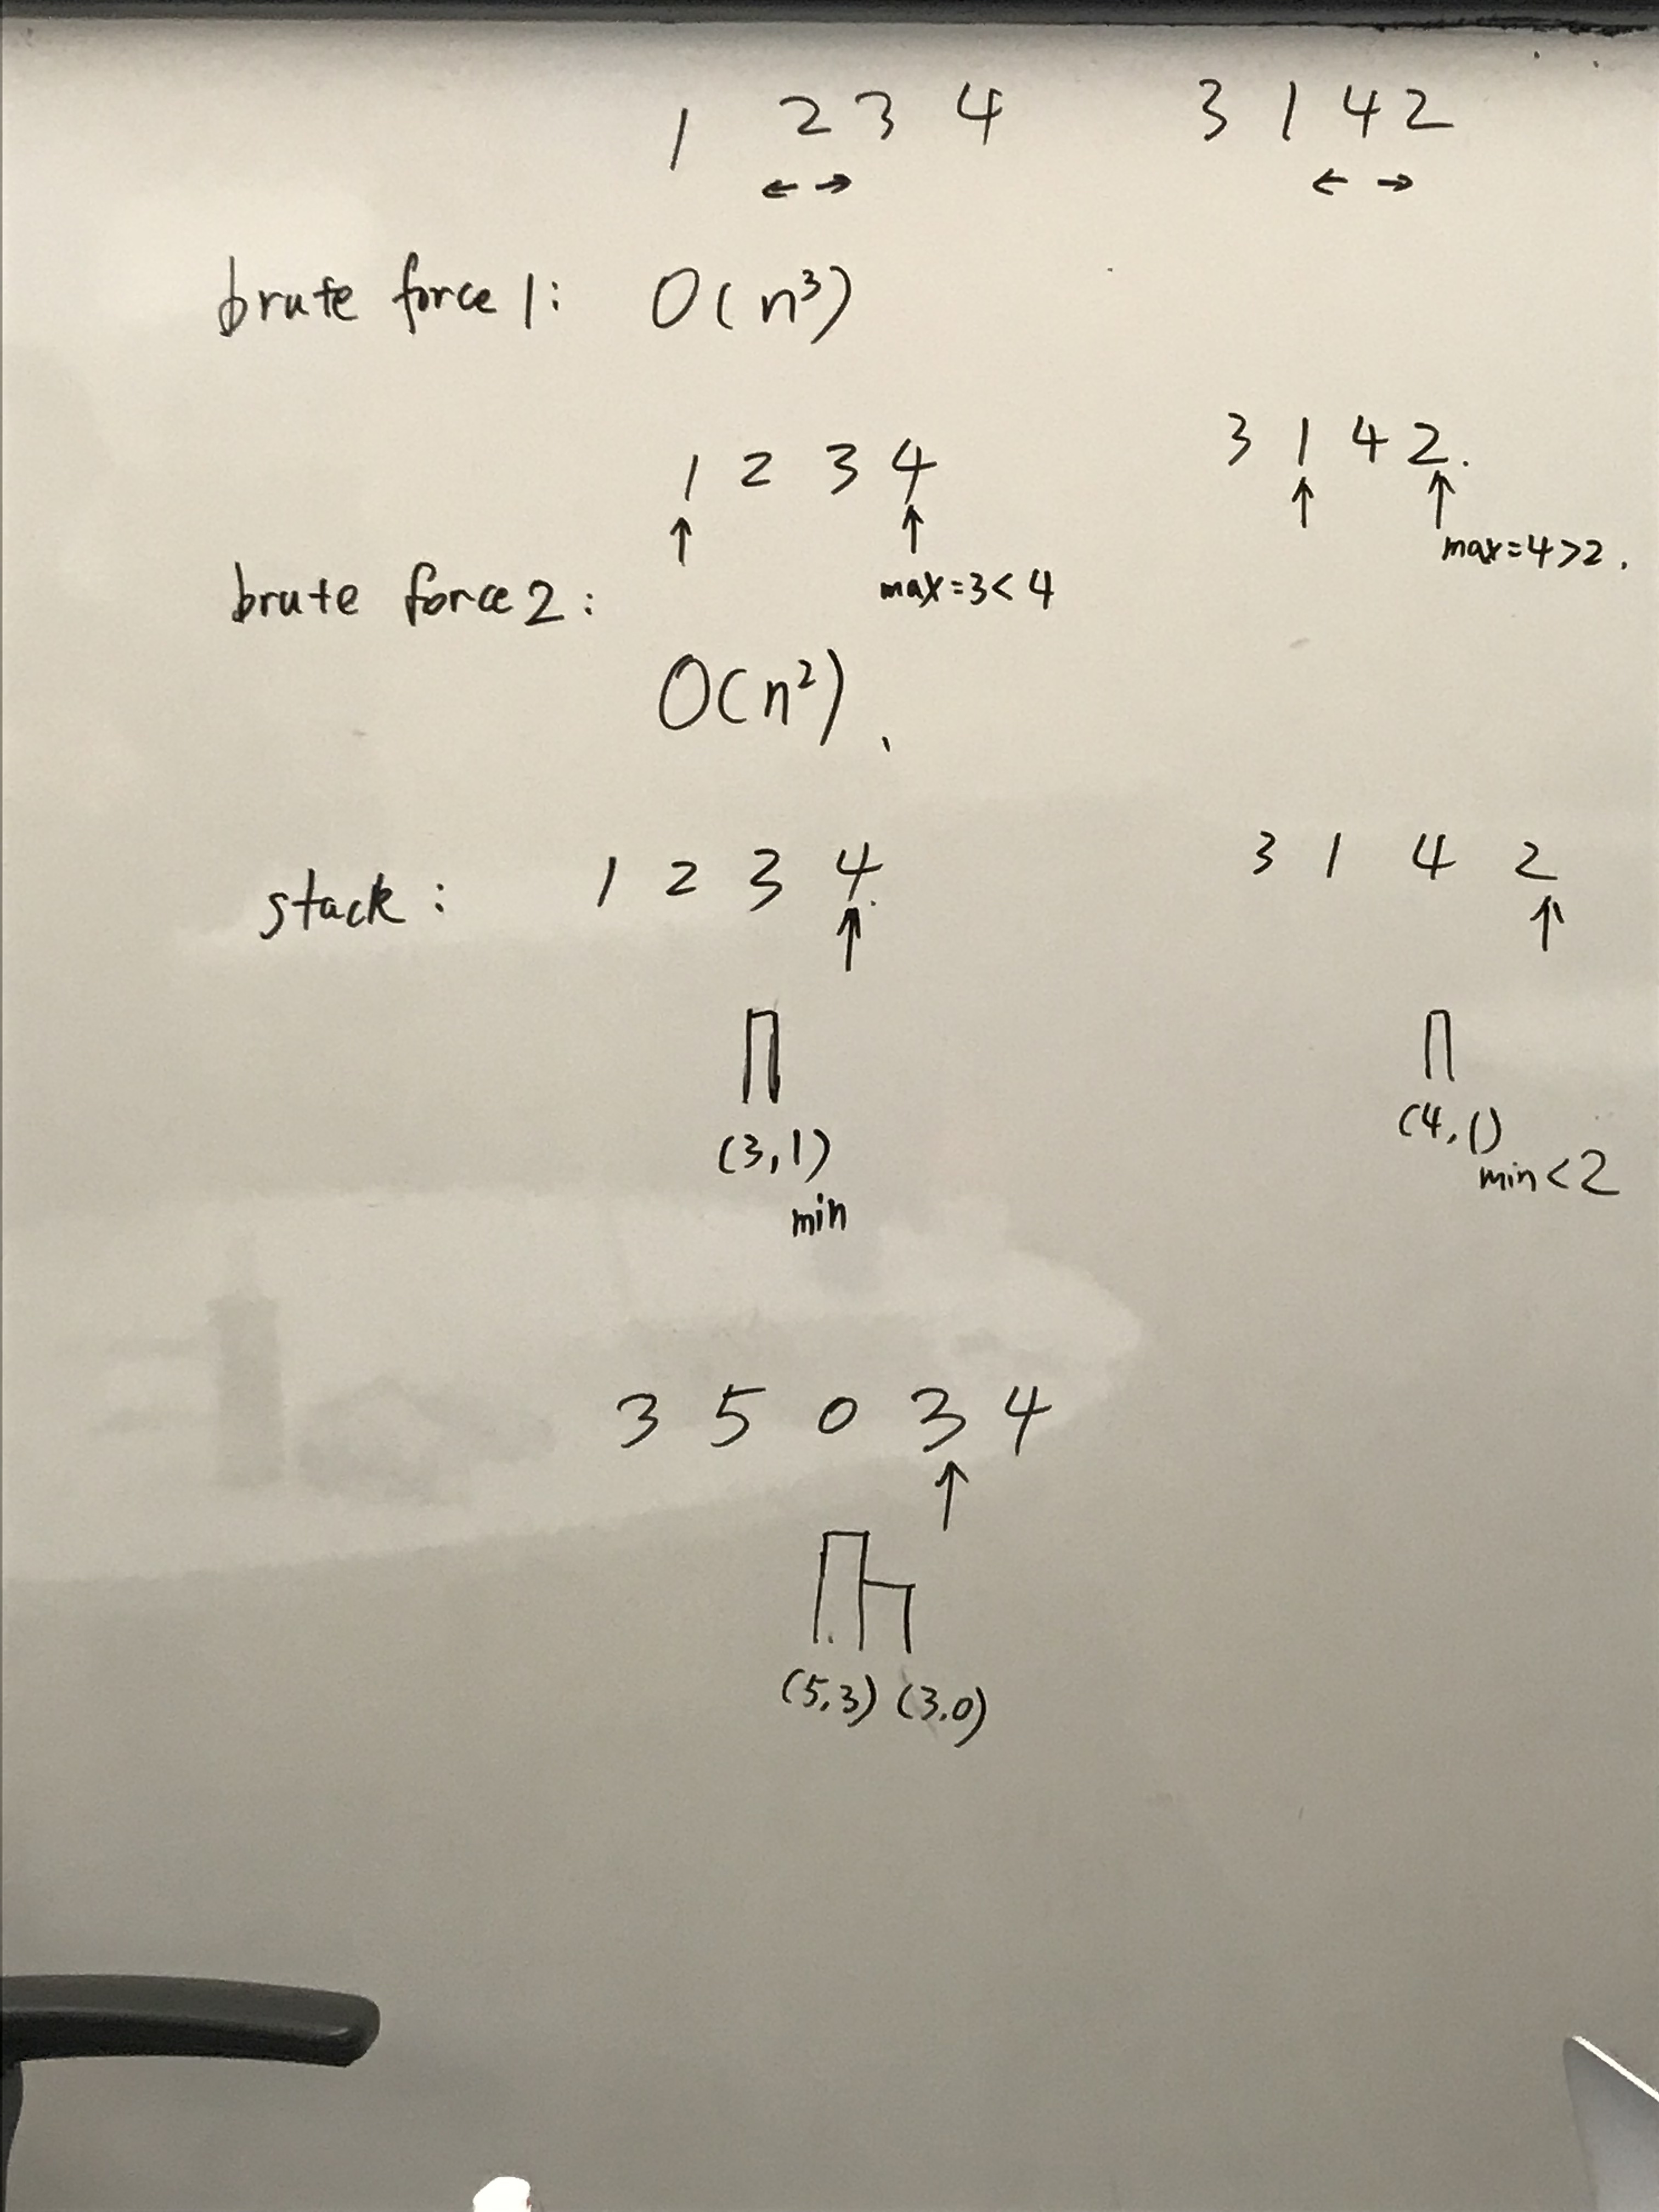 1 2 3 4 3 1 4 2
← → ← →
brute force 1: O(n³)
1 2 3 4 3 1 4 2.
↑ ↑ ↑ ↑
max=3<4 max=4>2.
brute force 2:
O(n²).
stack: 1 2 3 4 3 1 4 2
↑ ↑
(3,1) (4,1)
min min<2
3 5 0 3 4
↑
(5,3) (3,0)